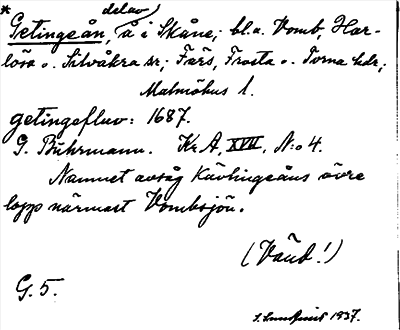 * delav
Getingeån, å i Skåne; bl.a. Vomb, Har-
lösa o. Silvåkra sr; Färs, Frosta o. Torna hdr;
Malmöhus l.
getingefluv: 1687.
G. Buhrmann. Kr.A, XVII, N:o 4.
Namnet avsåg Kävlingeåns övre
lopp närmast Vombsjön.
(Vänd!)
G. 5.
1937.